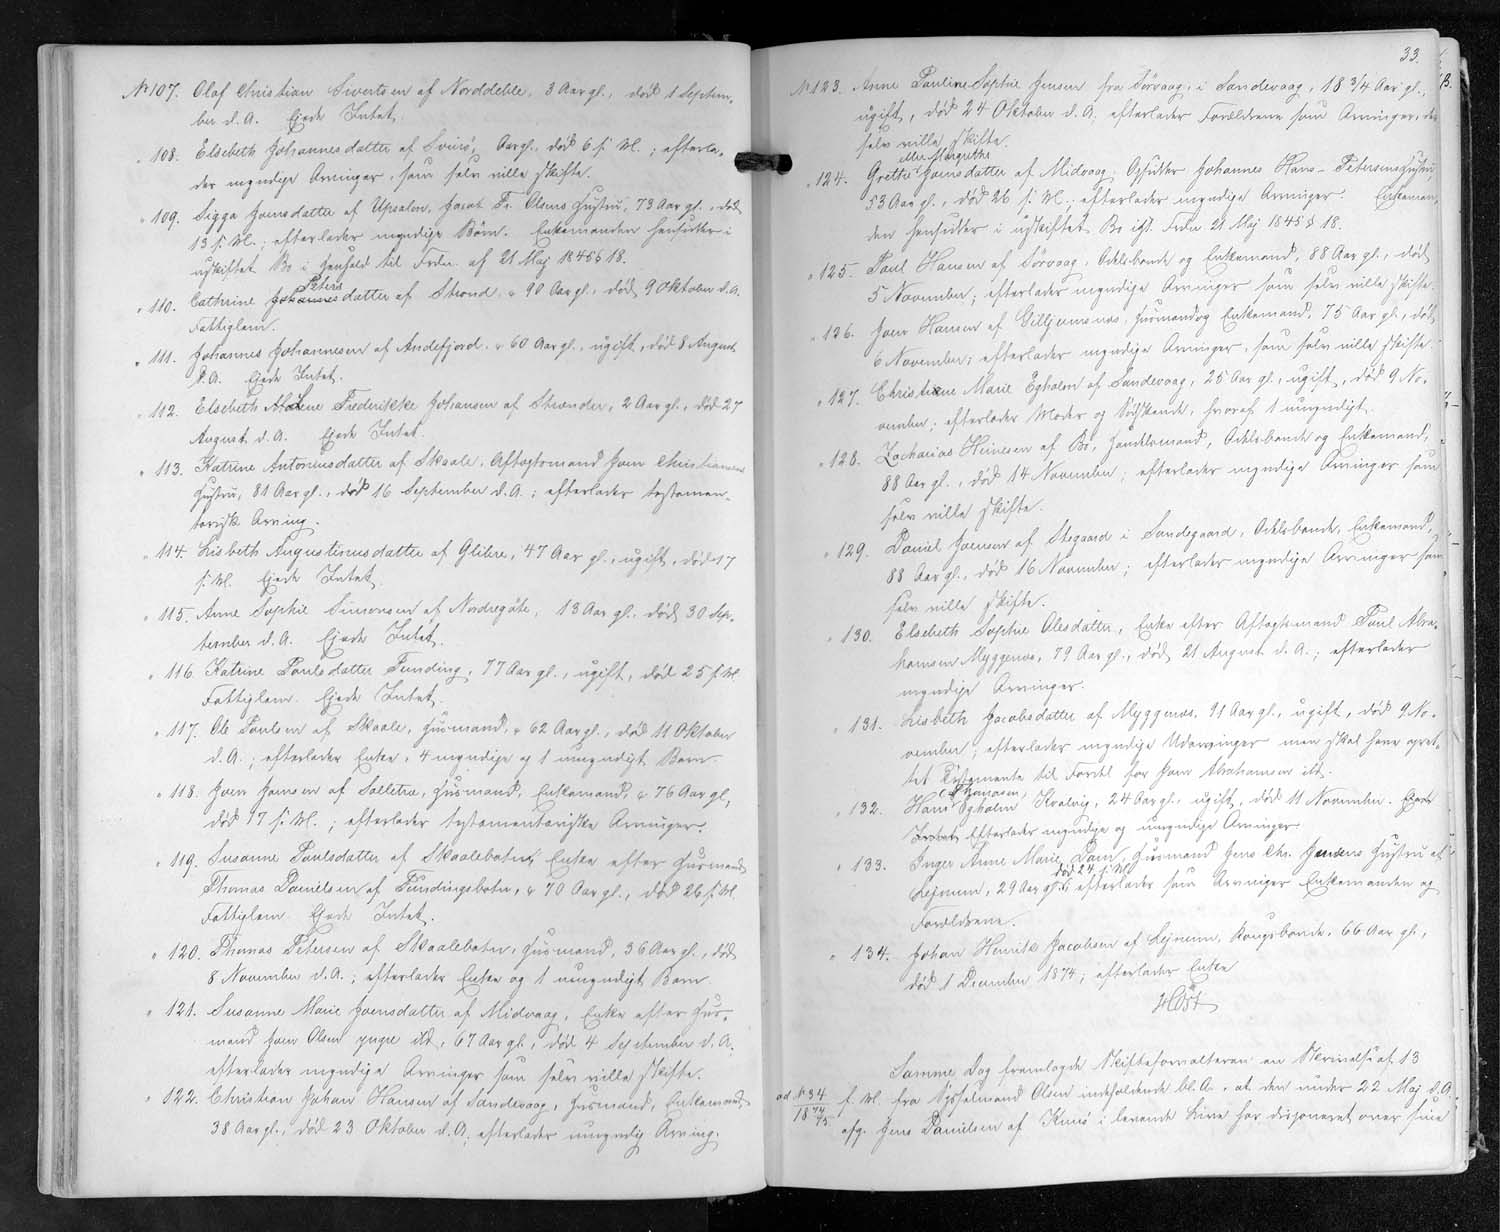 No 107. Olaf Christian Sivertsen af Norddeble, 3 Aar gl., død 1 Septem-
ber d. A. Ejede Intet.
" 108. Elsebeth Johannesdatter af Svinø, Aar gl., død 6 s. M.; efterla-
der myndige Arvinger, som selv ville skifte.
" 109. Sigga Joensdatter af Upsalen, Jacob Fr. Olsens Hustru, 73 Aar gl., død
13 s. M.; efterlader myndige Børn. Enkemanden hensidder i
uskiftet Bo i Henhold til Frdn. af 21 Maj 1845 § 18.
Peters
" 110. Cathrine Johannesdatter af Strond, 90 Aar gl., død 9 Oktober d. A.
Fattiglem.
" 111. Johannes Johannesen af Andefjord, 60 Aar gl., ugift, død 8 August
d. A. Ejede Intet.
" 112. Elsebeth Malene Frederikke Johansen af Strænder, 2 Aar gl., død 27
August d. A. Ejede Intet.
" 113. Katrine Antoniusdatter af Skaale, Aftægtsmand Joen Christiansens
Hustru, 81 Aar gl., død 16 September d. A.; efterlader testamen-
tarisk Arving.
" 114. Lisbeth Augustinusdatter af Glibre, 47 Aar gl., ugift, død 17
s. M. Ejede Intet.
" 115. Anne Sophie Simonsen af Nordregøte, 13 Aar gl., død 30 Sep-
tember d. A. Ejede Intet.
" 116. Katrine Poulsdatter Funding, 77 Aar gl., ugift, død 25 s. M.
Fattiglem. Ejede Intet.
" 117. Ole Poulsen af Skaale, Husmand, 62 Aar gl., død 11 Oktober
d. A.; efterlader Enke, 4 myndige og 1 umyndigt Barn.
" 118. Joen Joensen af Selletræ, Husmand, Enkemand, 76 Aar gl.,
død 17 s. M.; efterlader testamentariske Arvinger.
" 119. Susanne Poulsdatter af Skaalebotn, Enke efter Husmand
Thomas Danielsen af Fundingsbotn, 70 Aar gl., død 26 s. M.
Fattiglem. Ejede Intet.
" 120. Thomas Petersen af Skaalebotn, Husmand, 36 Aar gl., død
8 November d. A.; efterlader Enke og 1 umyndigt Barn.
" 121. Susanne Marie Joensdatter af Midvaag, Enke efter Hus-
mand Joen Olsen yngre ibd, 67 Aar gl., død 4 September d. A.;
efterlader myndige Arvinger som selv ville skifte.
" 122. Christian Johan Hansen af Sandevaag, Husmand, Enkemand,
38 Aar gl., død 23 Oktober d. A.; efterlader umyndig Arving.
33.
No 123. Anne Pauline Sophie Jensen fra Sørvaag, i Sandevaag, 18 3/4 Aar gl.,
ugift, død 24 Oktober d. A.; efterlader Forældrene som Arvinger, der
selv ville skifte.
eller Margrethe
" 124. Grethe Joensdatter af Midvaag, Opsidder Johannes Hans-Petersens Hustru
53 Aar gl., død 26 s. M.; efterlader myndige Arvinger. Enkeman-
den hensidder i uskiftet Bo igf. Frdn 21 Maj 1845 § 18.
" 125. Poul Hansen af Sørvaag, Odelsbonde og Enkemand, 88 Aar gl., død
5 November; efterlader myndige Arvinger som selv ville skifte.
" 126. Joen Hansen af Gilljumnæs, Husmand og Enkemand, 75 Aar gl., død
6 November; efterlader myndige Arvinger, som selv ville skifte.
" 127. Christiene Marie Egholm af Sandevaag, 25 Aar gl., ugift, død 9 No-
vember; efterlader Moder og Sødskende, hvoraf 1 umyndigt.
" 128. Zacharias Heinesen af Bø, Handelsmand, Odelsbonde og Enkemand,
88 Aar gl., død 14 November; efterlader myndige Arvinger som
selv ville skifte.
" 129. Daniel Joensen af Stegaard i Sandegaard, Odelsbonde, Enkemand,
88 Aar gl., død 16 November; efterlader myndige Arvinger som
selv ville skifte.
" 130. Elsebeth Sophie Olesdatter, Enke efter Aftægtsmand Poul Abra-
hamsen Myggenæs, 79 Aar gl., død 21 August d. A.; efterlader
myndige Arvinger.
" 131. Lisbeth Jacobsdatter af Myggenæs, 91 Aar gl., ugift, død 9 No-
vember; efterlader myndige Udarvinger men skal have opret-
tet Testamente til Fordel for Joen Abrahamsen ibd.
Hansen,
" 132. Hans Egholm Kvalvig, 24 Aar gl., ugift, død 11 November. Ejede
Intet. Efterlader myndige og umyndige Arvinger.
" 133. Inger Anne Marie Dam, Husmand Jens Chr. Jensens Hustru af
død 24 s. M.
Lejnum, 29 Aar gl.; efterlader som Arvinger Enkemanden og
Forældrene.
" 134. Johan Henrik Jacobsen af Lejnum, Kongsbonde, 66 Aar gl.,
død 1 December 1874; efterlader Enke
HCöst
Samme Dag fremlagde Skifteforvalteren en Skrivelse af 13
ad No 34
1874/75
f. M. fra Sysselmand Olsen indholdende bl. A., at den under 22 Maj d. A.
afg. Jens Danielsen af Kunø i levende Live har disponeret over sine